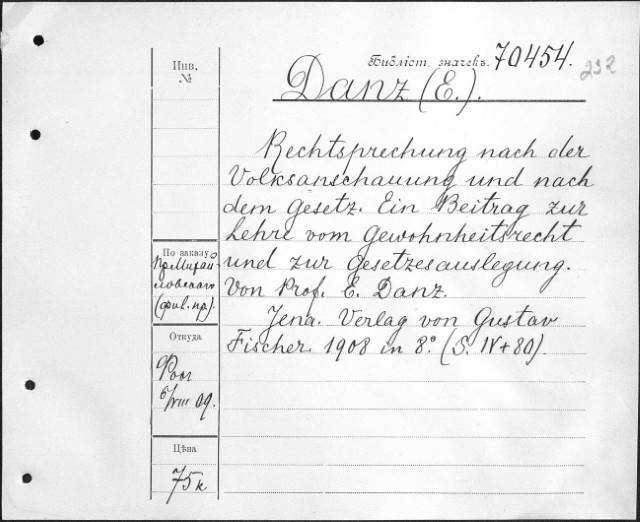 Библіот. значекъ. 70454.
232
Инв.
№
Danz (E.).
Rechtsprechung nach der
Volksanschauung und nach
dem Gesetz. Ein Beitrag zur
Lehre vom Gewohnheitsrecht
und zur Gesetzesauslegung.
Von Prof. E. Danz.
Jena. Verlag von Gustav
Fischer. 1908 in 8° (S. IV + 80).
По заказу
пр. Михай
ловскаго
(фил. пр).
Откуда
6/VIII 09.
Цѣна
75 к